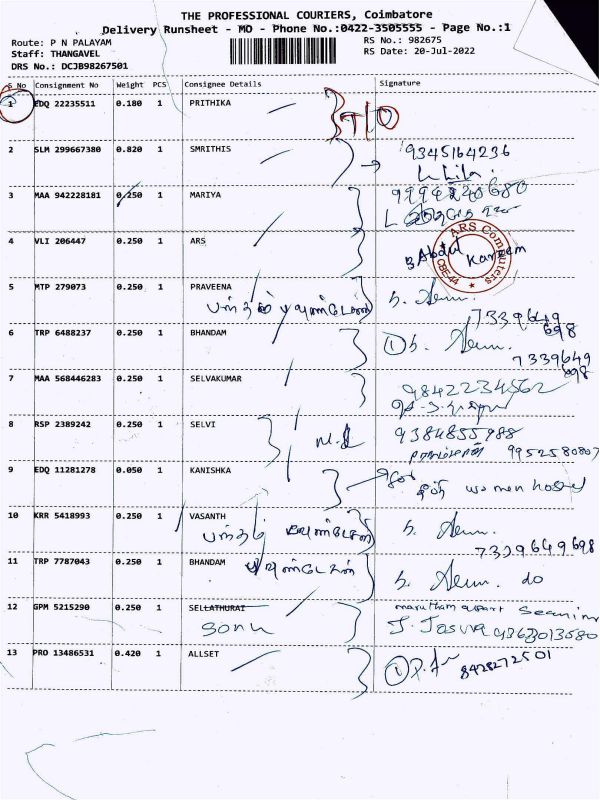 THE PROFESSIONAL COURIERS, Coimbatore
Delivery Runsheet - MO - Phone No.:0422-3505555 - Page No.:1
Route: P N PALAYAM
Staff: THANGAVEL
DRS No.: DCJB98267501
RS No.: 982675
RS Date: 20-Jul-2022
S No Consignment No Weight PCS Consignee Details Signature
1 EDQ 22235511 0.180 1 PRITHIKA
2 SLM 299667380 0.820 1 SMRITHIS 9345164236
3 MAA 942228181 0.250 1 MARIYA
4 VLI 206447 0.250 1 ARS Abdul Kareem
ARS Computers
CBE-44
5 MTP 279073 0.250 1 PRAVEENA
7339649
698
6 TRP 6488237 0.250 1 BHANDAM
7339649
698
7 MAA 568446283 0.250 1 SELVAKUMAR 9842234562
8 RSP 2389242 0.250 1 SELVI 9384855988
9952580807
9 EDQ 11281278 0.050 1 KANISHKA
women hostel
10 KRR 5418993 0.250 1 VASANTH
7339649698
11 TRP 7787043 0.250 1 BHANDAM
do
12 GPM 5215290 0.250 1 SELLATHURAI
Sonu
13 PRO 13486531 0.420 1 ALLSET
8428272501